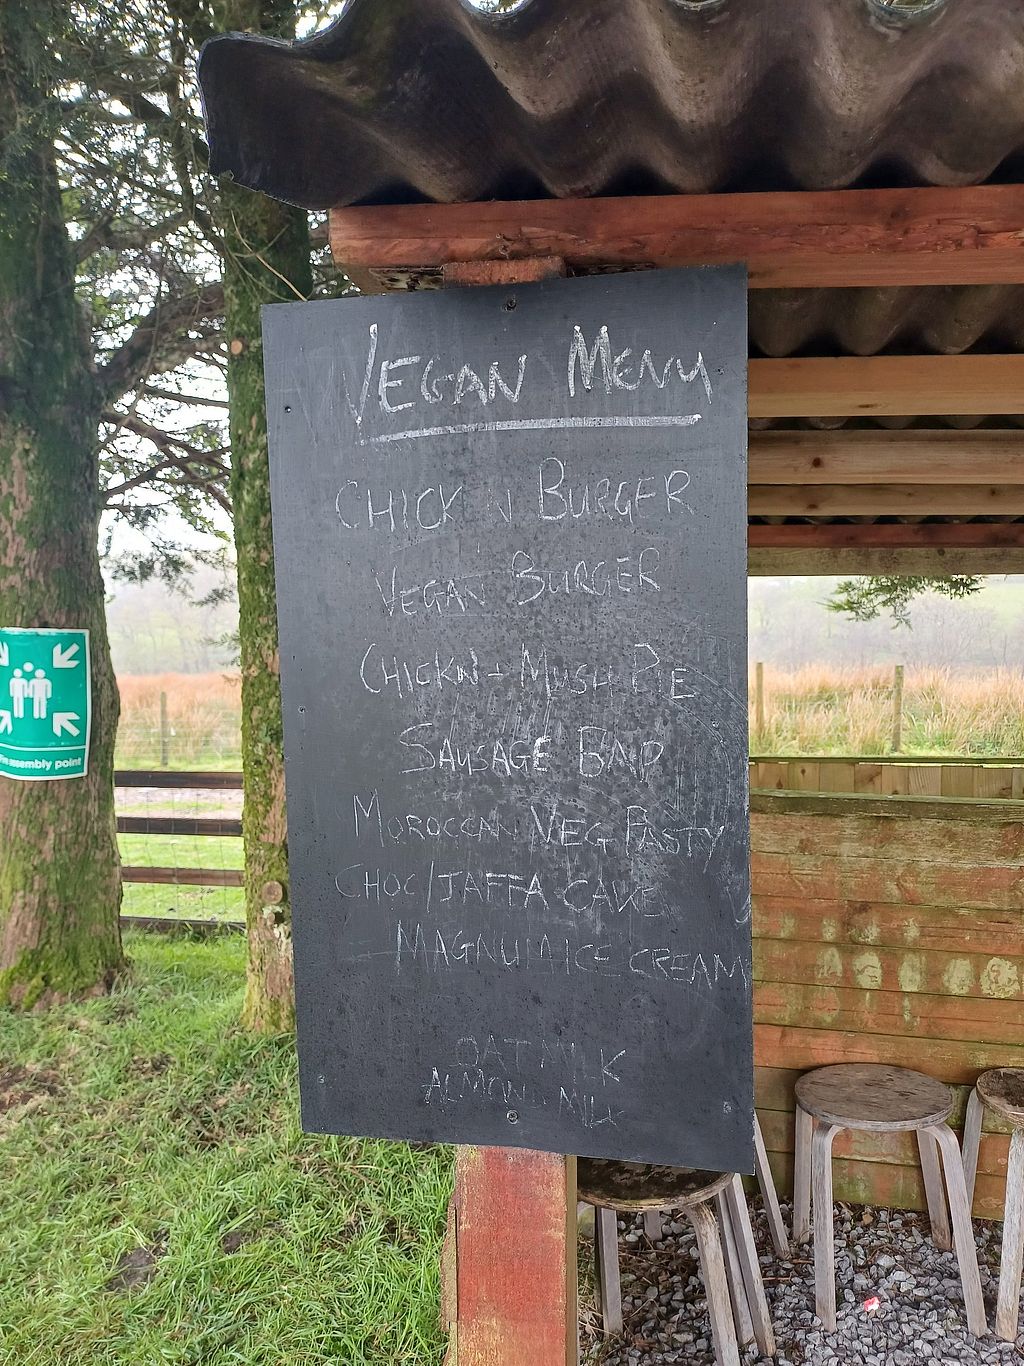 VEGAN MENU
CHICK'N BURGER
VEGAN BURGER
CHICKN - MUSH PIE
SAUSAGE BAP
MOROCCAN VEG PASTY
CHOC/JAFFA CAKE
MAGNUM ICE CREAM
OAT MILK
ALMOND MILK
Fire assembly point